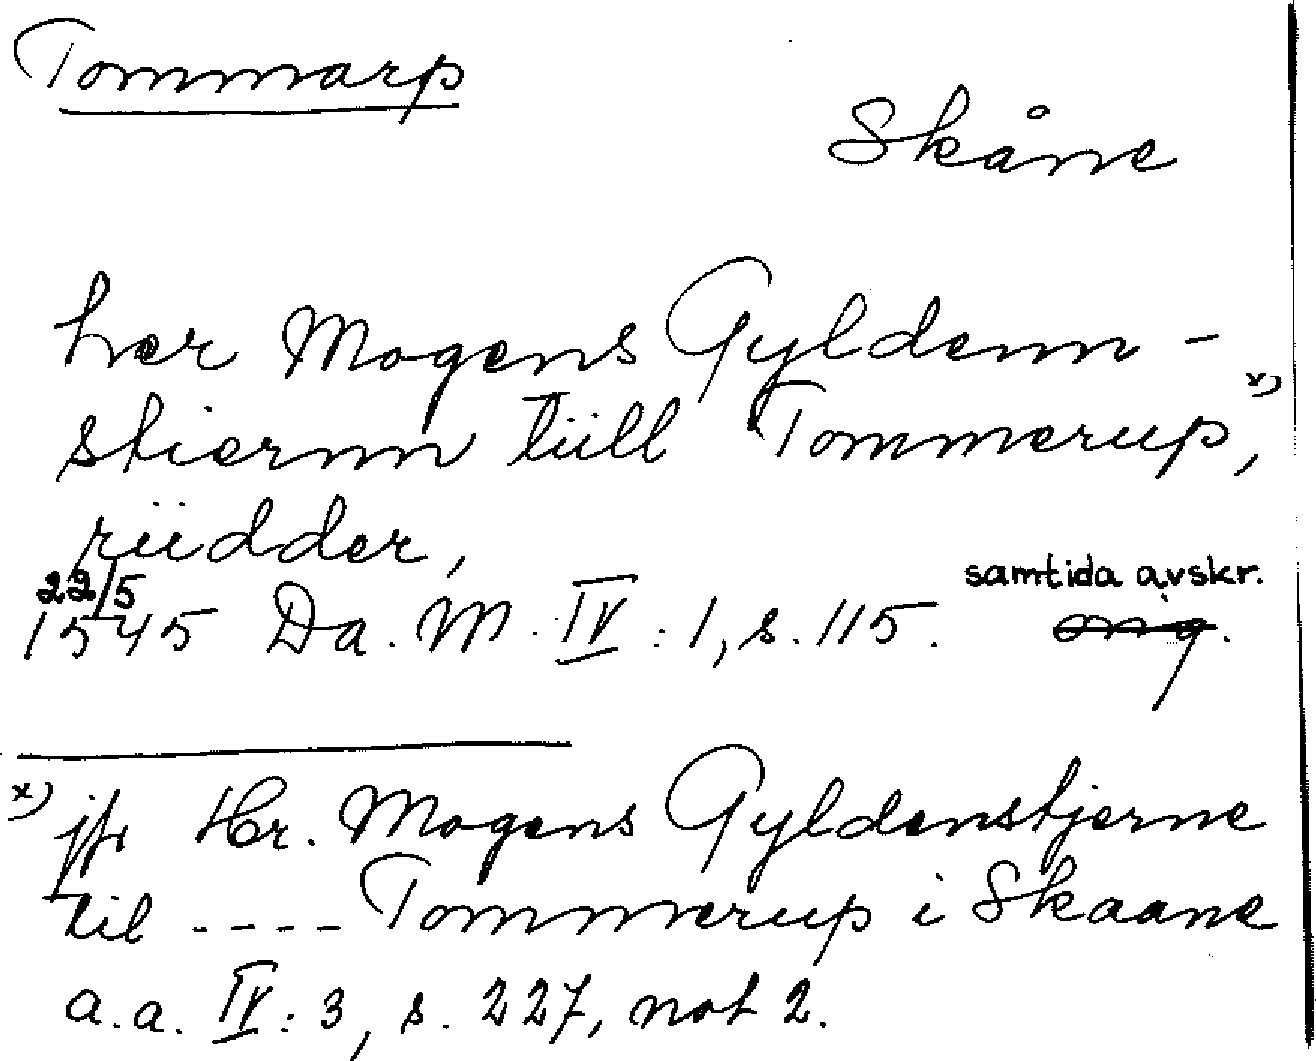 Tommarp
Skåne
her Mogens Gyldenn-
stiernn tiill Tommerup, x)
riidder,
22/5
samtida avskr.
1545 Da. M. IV : 1, s. 115. orig.
x) jfr Hr. Mogens Gyldenstjerne
til ---- Tommerup i Skaane
a.a. IV : 3, s. 227, not 2.